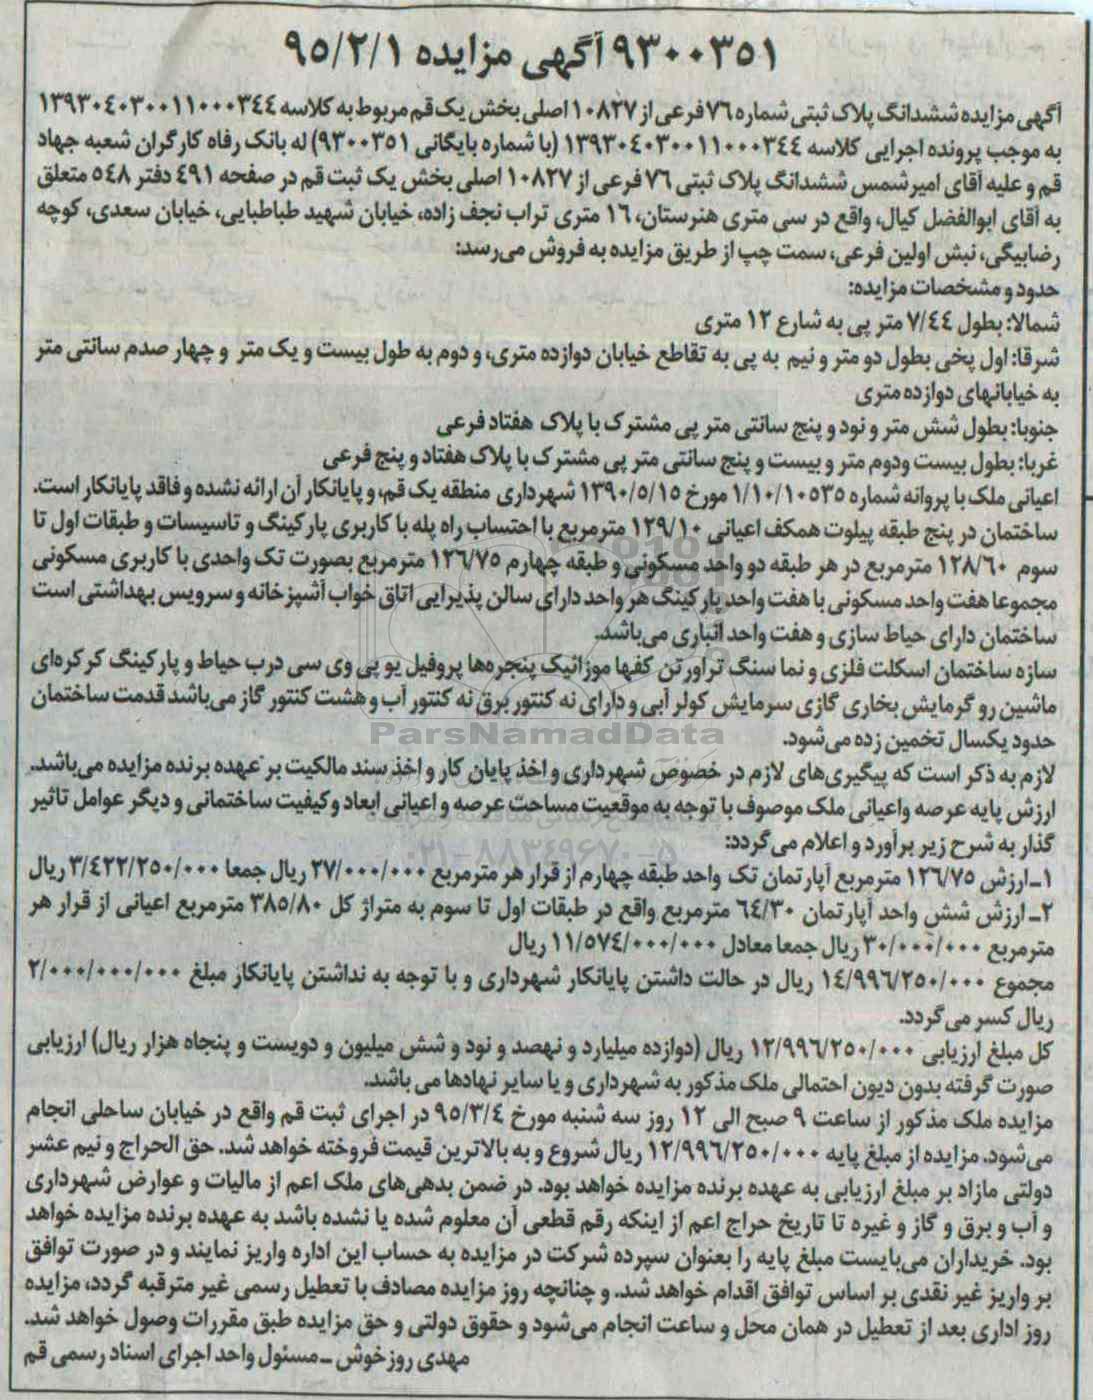 ۹۳۰۰۳۵۱ آگهی مزایده ۹۵/۲/۱
آگهی مزایده ششدانگ پلاک ثبتی شماره ۷۶ فرعی از ۱۰۸۲۷ اصلی بخش یک قم مربوط به کلاسه ۱۳۹۳۰۴۰۳۰۰۱۱۰۰۰۳۴۴
به موجب پرونده اجرایی کلاسه ۱۳۹۳۰۴۰۳۰۰۱۱۰۰۰۳۴۴ (با شماره بایگانی ۹۳۰۰۳۵۱) له بانک رفاه کارگران شعبه جهاد
قم و علیه آقای امیر شمس ششدانگ پلاک ثبتی ۷۶ فرعی از ۱۰۸۲۷ اصلی بخش یک ثبت قم در صفحه ۴۹۱ دفتر ۵۴۸ متعلق
به آقای ابوالفضل کیال، واقع در سی متری هنرستان، ۱۶ متری تراب نجف زاده، خیابان شهید طباطبایی، خیابان سعدی، کوچه
رضابیگی، نبش اولین فرعی، سمت چپ از طریق مزایده به فروش می‌رسد:
حدود و مشخصات مزایده:
شمالا: بطول ۷/۴۴ متر پی به شارع ۱۲ متری
شرقا: اول پخی بطول دو متر و نیم به پی به تقاطع خیابان دوازده متری، و دوم به طول بیست و یک متر و چهار صدم سانتی متر
به خیابانهای دوازده متری
جنوبا: بطول شش متر و نود و پنج سانتی متر پی مشترک با پلاک هفتاد فرعی
غربا: بطول بیست ودوم متر و بیست و پنج سانتی متر پی مشترک با پلاک هفتاد و پنج فرعی
اعیانی ملک با پروانه شماره ۱/۱۰/۱۰۵۳۵ مورخ ۱۳۹۰/۵/۱۵ شهرداری منطقه یک قم، و پایانکار آن ارائه نشده و فاقد پایانکار است.
ساختمان در پنج طبقه پیلوت همکف اعیانی ۱۲۹/۱۰ مترمربع با احتساب راه پله با کاربری پارکینگ و تاسیسات و طبقات اول تا
سوم ۱۲۸/۶۰ مترمربع در هر طبقه دو واحد مسکونی و طبقه چهارم ۱۲۶/۷۵ مترمربع بصورت تک واحدی با کاربری مسکونی
مجموعا هفت واحد مسکونی با هفت واحد پارکینگ هر واحد دارای سالن پذیرایی اتاق خواب آشپزخانه و سرویس بهداشتی است
ساختمان دارای حیاط سازی و هفت واحد انباری می‌باشد.
سازه ساختمان اسکلت فلزی و نما سنگ تراورتن کفها موزائیک پنجره‌ها پروفیل یو پی وی سی درب حیاط و پارکینگ کرکره‌ای
ماشین رو گرمایش بخاری گازی سرمایش کولر آبی و دارای نه کنتور برق نه کنتور آب و هشت کنتور گاز می‌باشد قدمت ساختمان
حدود یکسال تخمین زده می‌شود.
ParsNamadData
لازم به ذکر است که پیگیری‌های لازم در خصوص شهرداری و اخذ پایان کار و اخذ سند مالکیت بر عهده برنده مزایده می‌باشد.
ارزش پایه عرصه واعیانی ملک موصوف با توجه به موقعیت مساحت عرصه و اعیانی ابعاد و کیفیت ساختمانی و دیگر عوامل تاثیر
گذار به شرح زیر برآورد و اعلام می‌گردد:
۰۲۱-۸۸۳۴۹۶۷۰-۵
۱ـ ارزش ۱۲۶/۷۵ مترمربع آپارتمان تک واحد طبقه چهارم از قرار هر مترمربع ۲۷/۰۰۰/۰۰۰ ریال جمعا ۳/۴۲۲/۲۵۰/۰۰۰ ریال
۲ـ ارزش شش واحد آپارتمان ۶۴/۳۰ مترمربع واقع در طبقات اول تا سوم به متراژ کل ۳۸۵/۸۰ مترمربع اعیانی از قرار هر
مترمربع ۳۰/۰۰۰/۰۰۰ ریال جمعا معادل ۱۱/۵۷۴/۰۰۰/۰۰۰ ریال
مجموع ۱۴/۹۹۶/۲۵۰/۰۰۰ ریال در حالت داشتن پایانکار شهرداری و با توجه به نداشتن پایانکار مبلغ ۲/۰۰۰/۰۰۰/۰۰۰
ریال کسر می‌گردد.
کل مبلغ ارزیابی ۱۲/۹۹۶/۲۵۰/۰۰۰ ریال (دوازده میلیارد و نهصد و نود و شش میلیون و دویست و پنجاه هزار ریال) ارزیابی
صورت گرفته بدون دیون احتمالی ملک مذکور به شهرداری و یا سایر نهادها می باشد.
مزایده ملک مذکور از ساعت ۹ صبح الی ۱۲ روز سه شنبه مورخ ۹۵/۳/۴ در اجرای ثبت قم واقع در خیابان ساحلی انجام
می‌شود. مزایده از مبلغ پایه ۱۲/۹۹۶/۲۵۰/۰۰۰ ریال شروع و به بالاترین قیمت فروخته خواهد شد. حق الحراج و نیم عشر
دولتی مازاد بر مبلغ ارزیابی به عهده برنده مزایده خواهد بود. در ضمن بدهی‌های ملک اعم از مالیات و عوارض شهرداری
و آب و برق و گاز و غیره تا تاریخ حراج اعم از اینکه رقم قطعی آن معلوم شده یا نشده باشد به عهده برنده مزایده خواهد
بود. خریداران می‌بایست مبلغ پایه را بعنوان سپرده شرکت در مزایده به حساب این اداره واریز نمایند و در صورت توافق
بر واریز غیر نقدی بر اساس توافق اقدام خواهد شد. و چنانچه روز مزایده مصادف با تعطیل رسمی غیر مترقبه گردد، مزایده
روز اداری بعد از تعطیل در همان محل و ساعت انجام می‌شود و حقوق دولتی و حق مزایده طبق مقررات وصول خواهد شد.
مهدی روزخوش ـ مسئول واحد اجرای اسناد رسمی قم